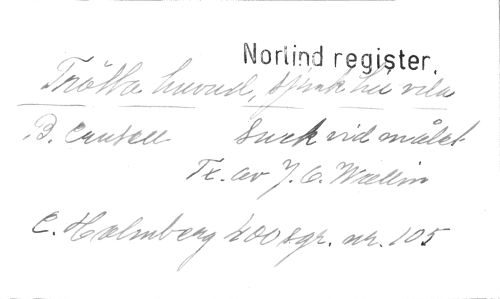 Norlind register.
Trötta huvud, sjunk till vila
B. Crusell Suck vid målet
Tx. av J. O. Wallin
C. Holmberg 400 sgr. nr. 105